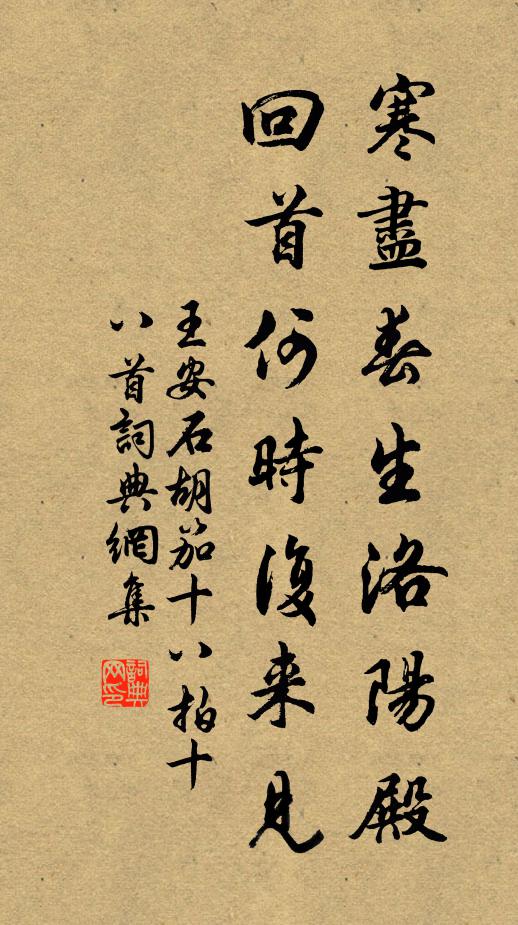 寒盡春生洛陽殿
回首何時復来見
王安石胡笳十八拍十
八首詞典網集
詞典
网印